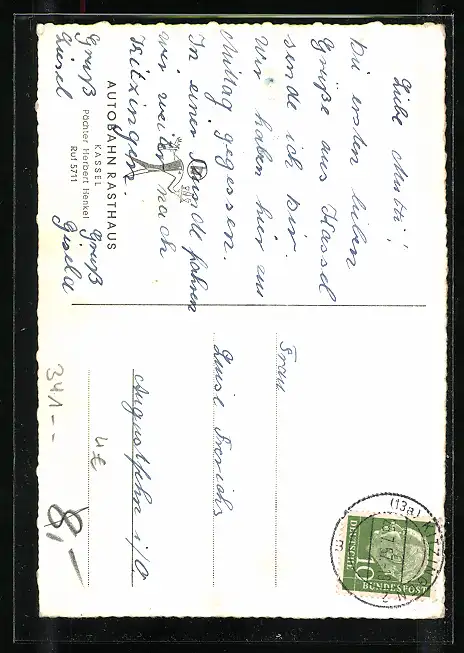 Liebe Mutti!
Die ersten lieben
Grüße aus Kassel
sende ich Dir.
Wir haben hier zu
Mittag gegessen.
In einer Stunde fahren
wir weiter nach
Kitzingen.
Gruß Gruß
Gisel Gisela
AUTOBAHN RASTHAUS
KASSEL
Pächter Herbert Henkel
Ruf 5711
Frau
Luise Frerichs
Augustfehn i/O
341--
4€
8,—
(13a) KITZINGEN
10
DEUTSCHE
BUNDESPOST